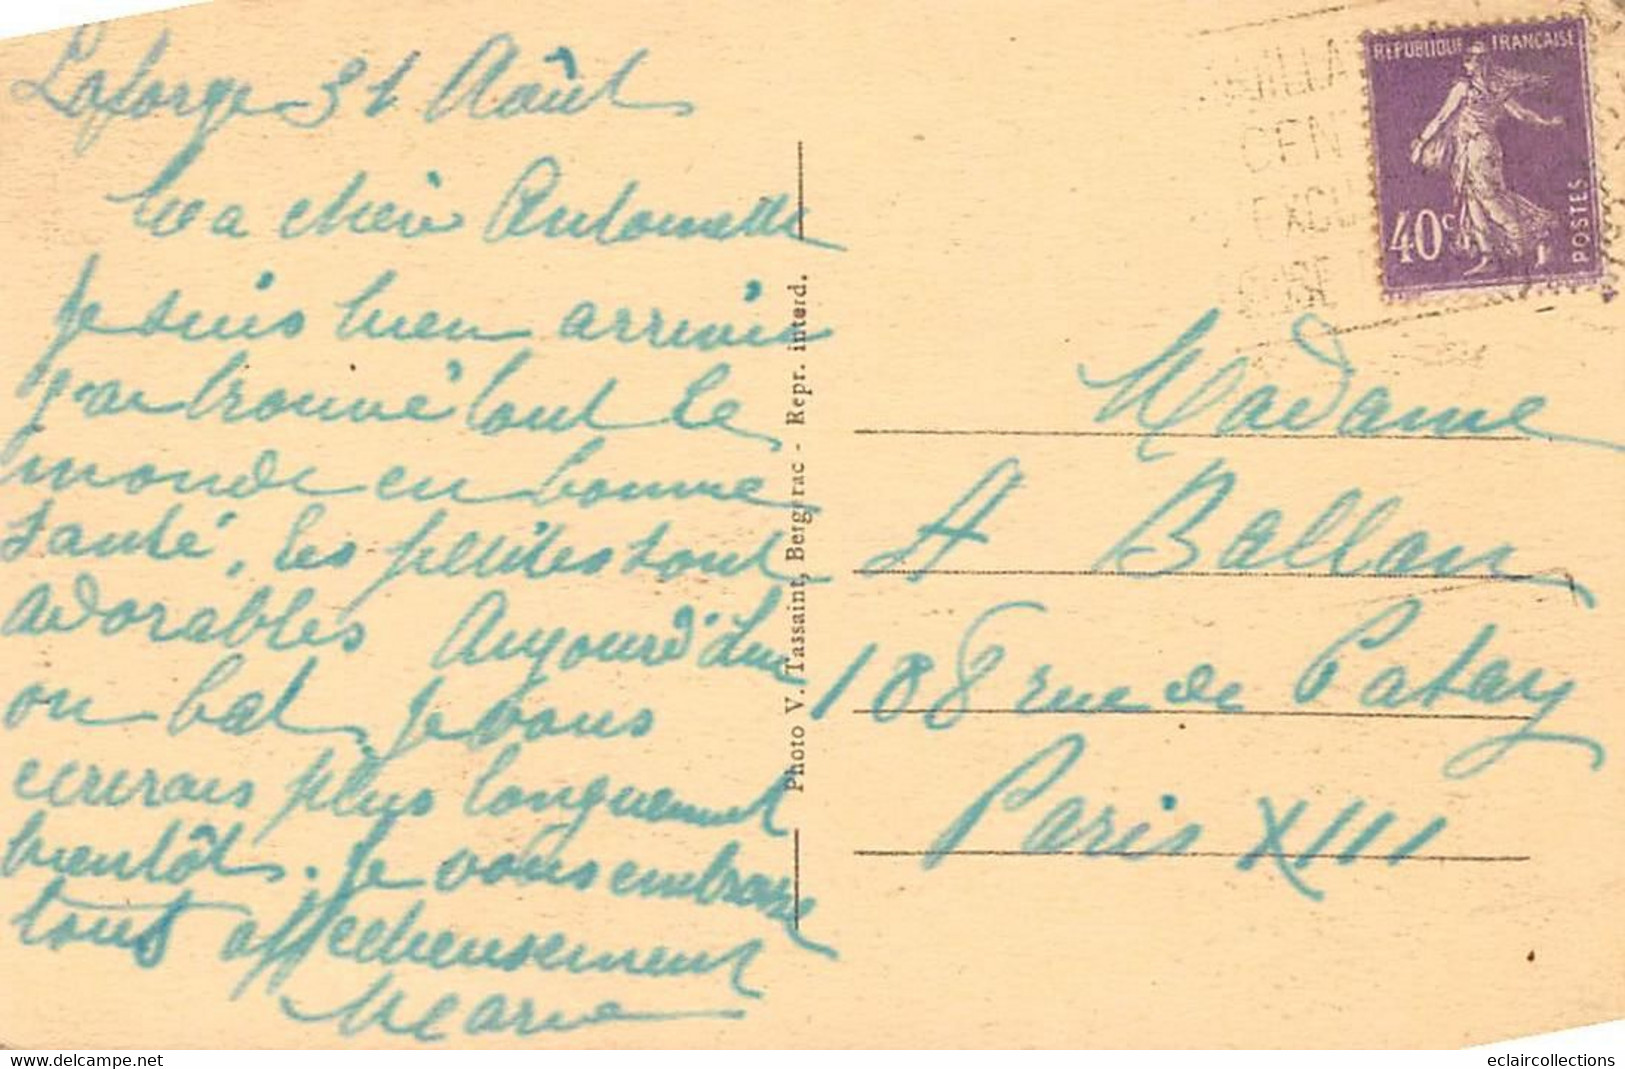 Laforge 31 Août
Ma chère Antoinette
Je suis bien arrivée
j'ai trouvé tout le
monde en bonne
santé, les petites sont
adorables Aujourd'hui
on bat, je vous
écrirais plus longuement
bientôt. Je vous embrasse
tous affectueusement
Marie
Photo V. Tassaint, Bergerac - Repr. interd.
REPUBLIQUE FRANÇAISE
40c
POSTES
CENT
EXCU
Madame
A Ballan
188 rue de Patay
Paris XIII
eclaircollections